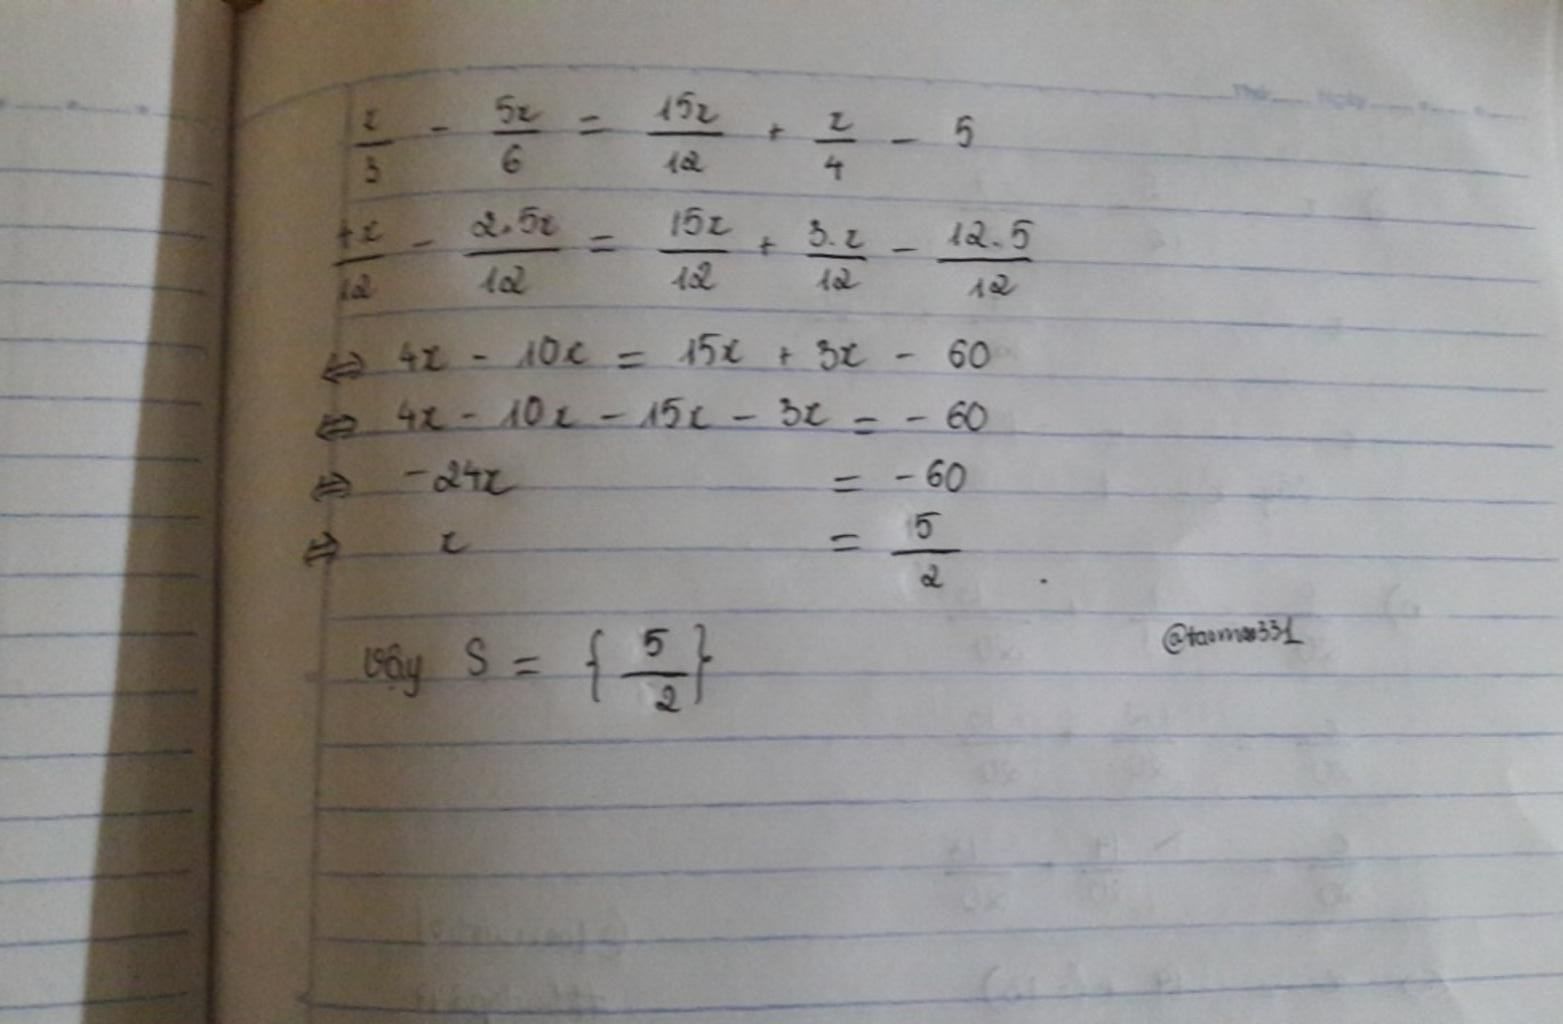 x/3 - 5x/6 = 15x/12 + x/4 - 5
4x/12 - 2.5x/12 = 15x/12 + 3.x/12 - 12.5/12
⇔ 4x - 10x = 15x + 3x - 60
⇔ 4x - 10x - 15x - 3x = - 60
⇔ -24x = - 60
⇔ x = 5/2 .
Vậy S = { 5/2 }